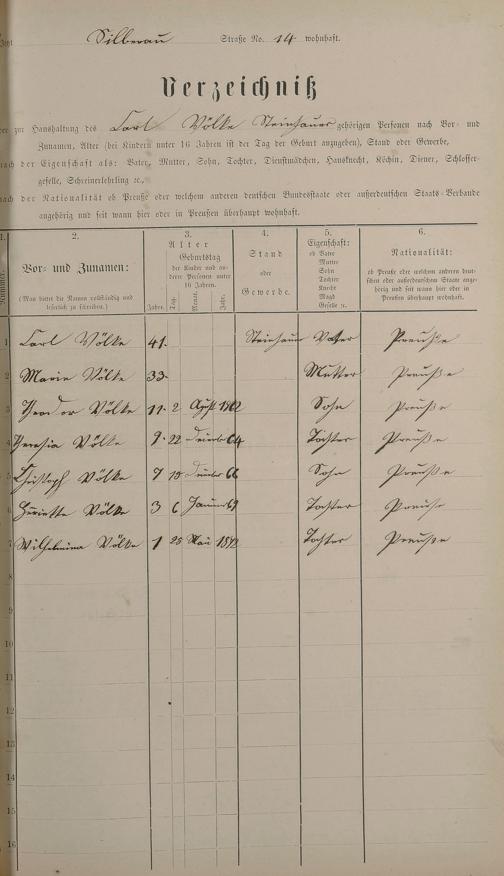 Silberau Straße No. 14 wohnhaft.
Verzeichniß
der zur Haushaltung des Carl Völke Steinhauer gehörigen Personen nach Vor- und
Zunamen, Alter (bei Kindern unter 16 Jahren ist der Tag der Geburt anzugeben), Stand oder Gewerbe,
nach der Eigenschaft als: Vater, Mutter, Sohn, Tochter, Dienstmädchen, Hausknecht, Köchin, Diener, Schlosser-
geselle, Schreinerlehrling ꝛc.,
nach der Nationalität ob Preuße oder welchem anderen deutschen Bundesstaate oder außerdeutschen Staats-Verbande
angehörig und seit wann hier oder in Preußen überhaupt wohnhaft.
1. 2. 3. 4. 5. 6.
Nummer.
Vor- und Zunamen:
(Man bittet die Namen vollständig und
leserlich zu schreiben.)
Alter
Geburtstag
der Kinder und an-
deren Personen unter
16 Jahren.
Jahre. Tag. Monat. Jahr.
Stand
oder
Gewerbe.
Eigenschaft:
ob Vater
Mutter
Sohn
Tochter
Knecht
Magd
Geselle ꝛc.
Nationalität:
ob Preuße oder welchem anderen deut-
schen oder außerdeutschen Staate ange-
hörig und seit wann hier oder in
Preußen überhaupt wohnhaft.
1 Carl Völke 41. Steinhauer Vater Preuße
2 Marie Völke 33. Mutter Preuße
3 Theodor Völke 11. 2 August 1862 Sohn Preuße
4 Theresia Völke 9. 22 64 Tochter Preuße
5 Christoph Völke 7 10 66 Sohn Preuße
6 Henriette Völke 3 6 Januar 69 Tochter Preuße
7 Wilhelmina Völke 1 25 Mai 1872 Tochter Preuße
8
9
10
11
12
13
14
15
16